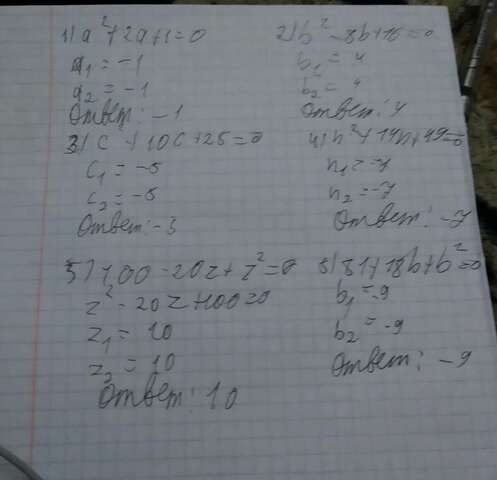 1) a²+2a+1=0
a₁=-1
a₂=-1
Ответ: -1
2) b²-8b+16=0
b₁=4
b₂=4
Ответ: 4
3) c²+10c+25=0
c₁=-5
c₂=-5
Ответ: -5
4) n²+14n+49=0
n₁=-7
n₂=-7
Ответ: -7
5) 100-20z+z²=0
z²-20z+100=0
z₁=10
z₂=10
Ответ: 10
6) 81+18b+b²=0
b₁=-9
b₂=-9
Ответ: -9